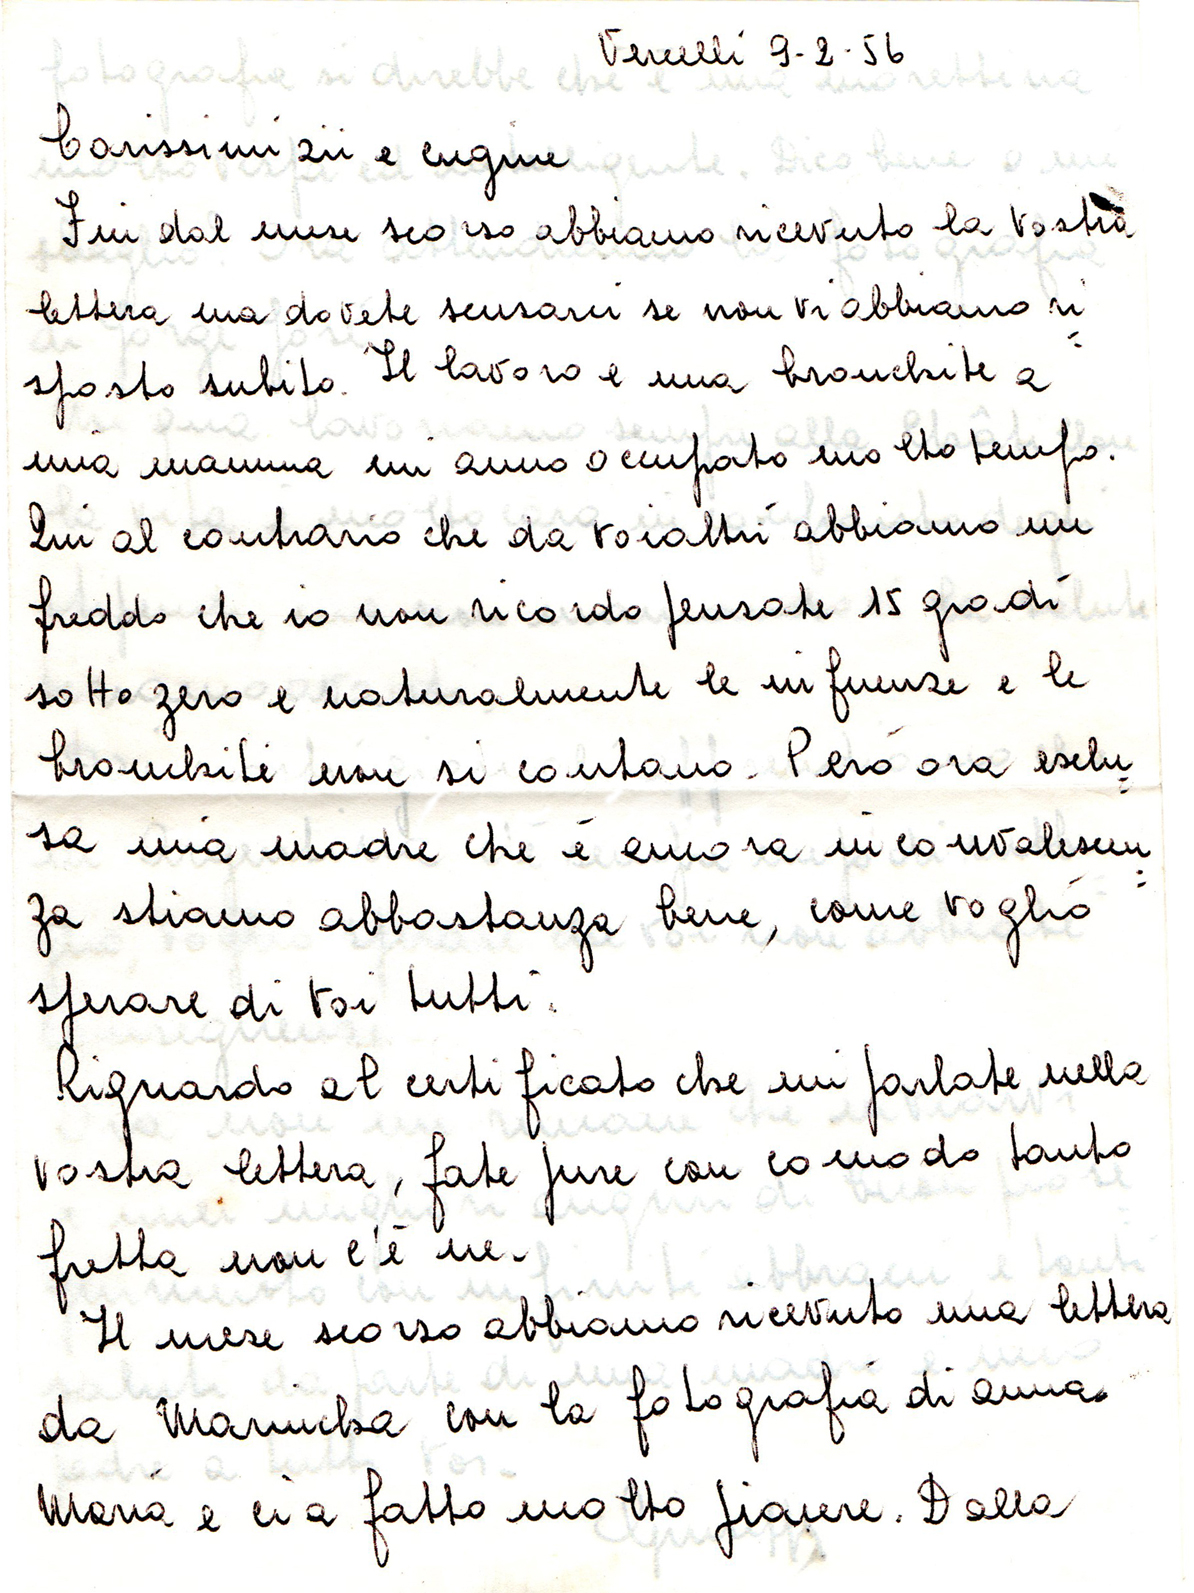 Vercelli 9-2-56
Carissimi zii e cugine
Fin dal mese scorso abbiamo ricevuto la vostra
lettera ma dovete scusarci se non vi abbiamo ri=
sposto subito. Il lavoro e una bronchite a
mia mamma mi anno occupato molto tempo.
Qui al contrario che da voialtri abbiamo un
freddo che io non ricordo pensate 15 gradi
sotto zero e naturalmente le infuenze e le
bronchiti non si contano. Però ora esclu=
sa mia madre che è ancora in convalescen=
za stiamo abbastanza bene, come voglio
sperare di voi tutti.
Riguardo al certificato che mi parlate nella
vostra lettera, fate pure con comodo tanto
fretta non c'è ne.
Il mese scorso abbiamo ricevuto una lettera
da Marincha con la fotografia di anna
Maria e ci a fatto molto piacere. Dalla